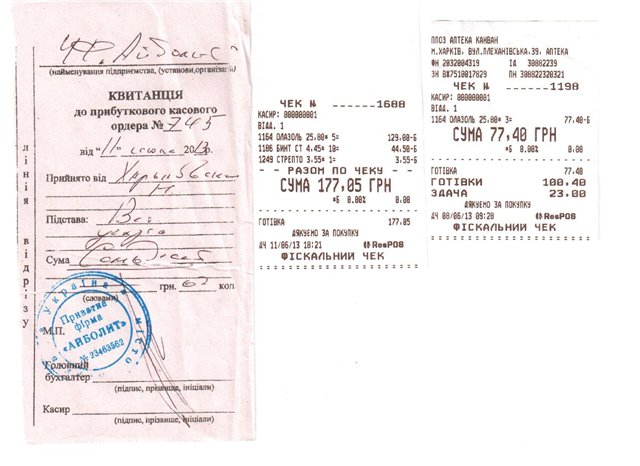 ЧФ. Айболит
(найменування підприємства, (установи, організації)
КВИТАНЦІЯ
до прибуткового касового
ордера № 745
від "11" 2013р.
Прийнято від
Підстава: Вет.
Сума
грн. коп
(словами)
М.П.
Головний
бухгалтер
(підпис, прізвище, ініціали)
Касир
(підпис, прізвище, ініціали)
лінія відрізу
Україна
місто
Приватна
фірма
«АЙБОЛИТ»
№ 23463562
ЧЕК № ______1600
КАСИР: 000000001
ВІДД. 1
1164 ОЛАЗОЛЬ 25.80* 5= 129.00-Б
1106 БИНТ СТ 4.45* 10= 44.50-Б
1249 СТРЕПТО 3.55* 1= 3.55-Б
- - РАЗОМ ПО ЧЕКУ - -
СУМА 177,05 ГРН
*Б 0.00% 0.00
ГОТІВКА 177.05
ДЯКУЄМО ЗА ПОКУПКУ
ДЧ 11/06/13 18:21 ResPOS
ФІСКАЛЬНИЙ ЧЕК
ППОЗ АПТЕКА КАНВАН
М.ХАРКІВ, ВУЛ.ПЛЕХАНІВСЬКА,39, АПТЕКА
ФН 2032004319 ІД 30882239
ЗН 087510017029 ПН 308822320321
ЧЕК № ______1190
КАСИР: 000000001
ВІДД. 1
1164 ОЛАЗОЛЬ 25.80* 3= 77.40-Б
СУМА 77,40 ГРН
*Б 0.00% 0.00
ГОТІВКА 77.40
ГОТІВКИ 100.40
ЗДАЧА 23.00
ДЯКУЄМО ЗА ПОКУПКУ
ДЧ 08/06/13 09:20 ResPOS
ФІСКАЛЬНИЙ ЧЕК